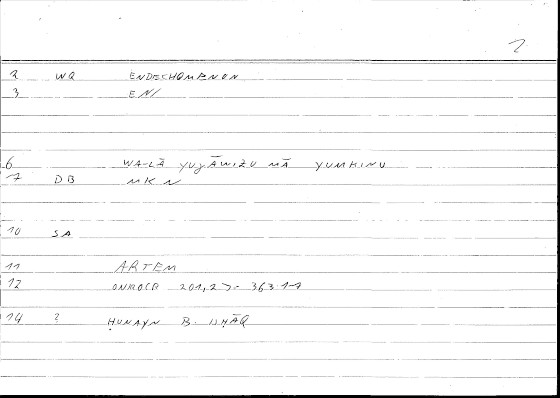 2
2 WQ ENDECHOMENON
3 ENI
6 WA-LĀ YUǦĀWIZU MĀ YUMKINU
7 DB MKN
10 SA
11 ARTEM
12 ONIROCR 201,2 363:17
14 ? ḤUNAYN B. ISḤĀQ